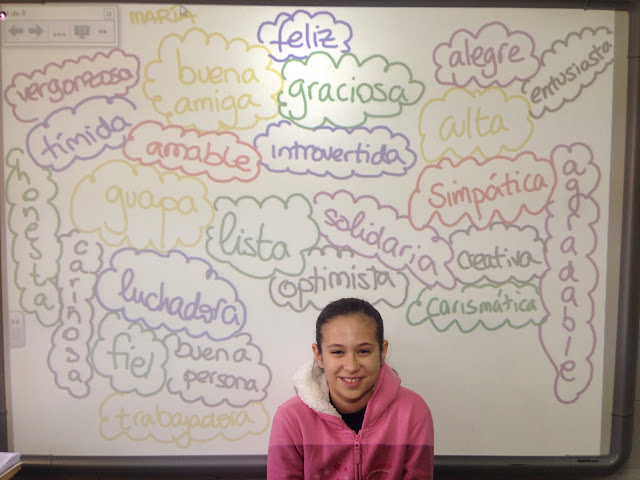 MARÍA
feliz
alegre
entusiasta
vergonzosa
buena
amiga
graciosa
alta
tímida
amable
introvertida
simpática
agradable
honesta
guapa
lista
solidaria
creativa
cariñosa
luchadora
optimista
carismática
fiel
buena
persona
trabajadora